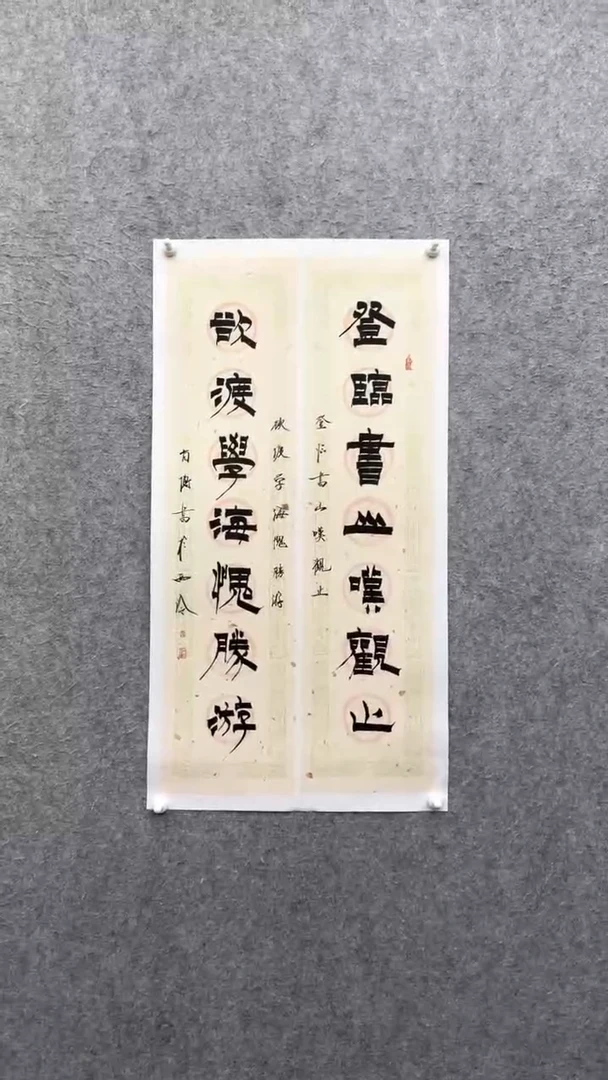 登臨書山嘆觀止
登临书山嘆觀止
欲渡学海愧勝游
欲渡學海愧勝游
書於西泠